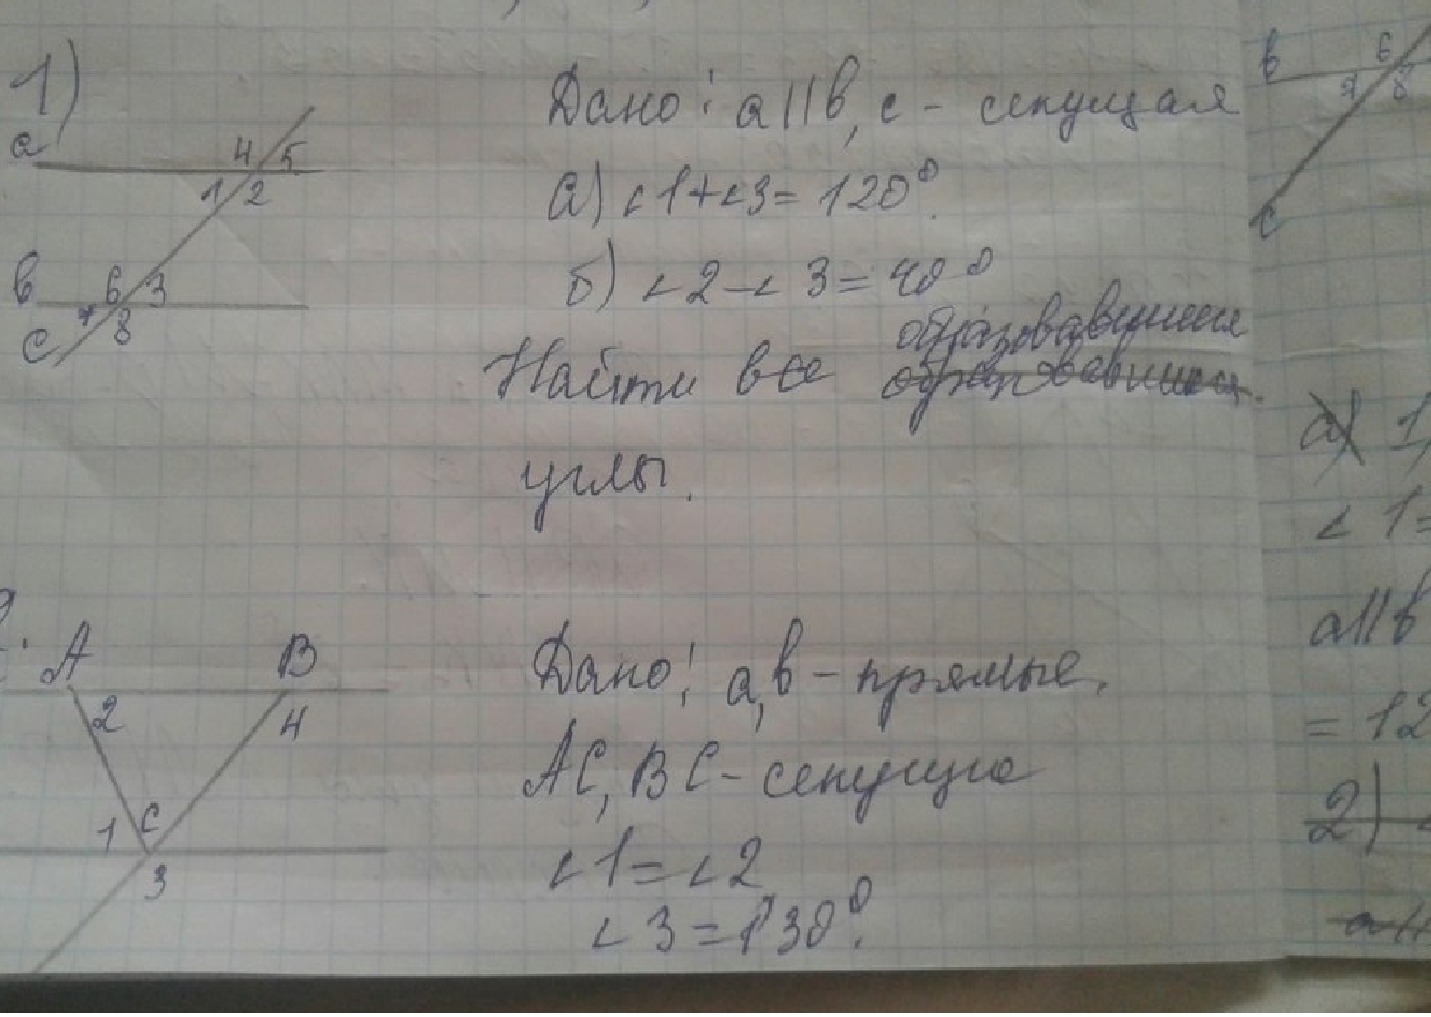 1)
a
4 5
1 2
в
6 3
7 8
с
Дано: a||в, с - секущая
а) <1+<3=120°.
б) <2-<3=40°
Найти все образовавшиеся
углы.
А В
2 4
1 С
3
Дано: a, в - прямые.
АС, ВС - секущие
<1=<2
<3=130°.
в
6
7 8
с
а) 1)
<1=
a||в
=12
2)